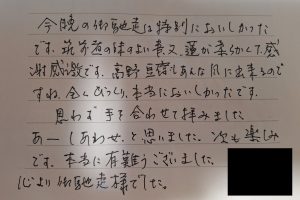 今晩の御馳走は特別においしかった
です。筑前煮の味のよい事、又、蓮が柔らかくて、感
謝感激です。高野豆腐もあんな風に出来るので
すね、全くびっくり、本当においしかったです。
思わず手を合わせて拝みました。
あーしあわせ、と思いました。次も楽しみ
です。本当に有難うございました。
心より御馳走様でした。